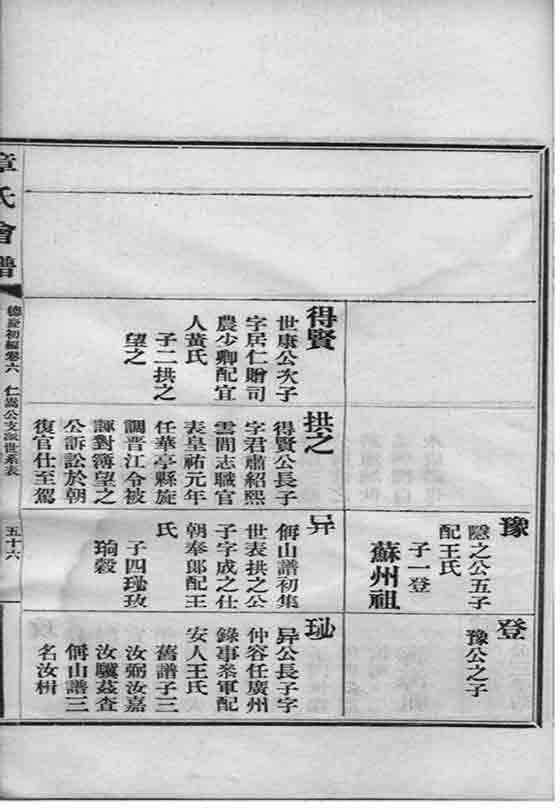 豫
隱之公五子
配王氏
子一登
蘇州祖
登
豫公之子
得賢
世康公次子
字居仁贈司
農少卿配宜
人黃氏
子二拱之
望之
拱之
得賢公長子
字君肅紹熙
雲間志職官
表皇祐元年
任華亭縣旋
調晋江令被
誣對簿望之
公訴訟於朝
復官仕至駕
异
偁山譜初集
世表拱之公
子字成之仕
朝奉郎配王
氏
子四珌玫
瑜穀
珌
异公長子字
仲容任廣州
錄事叅軍配
安人王氏
舊譜子三
汝弼汝嘉
汝驥茲查
偁山譜三
名汝
章氏會譜
德慶初編卷六
仁嵩公支派世系表
五十六